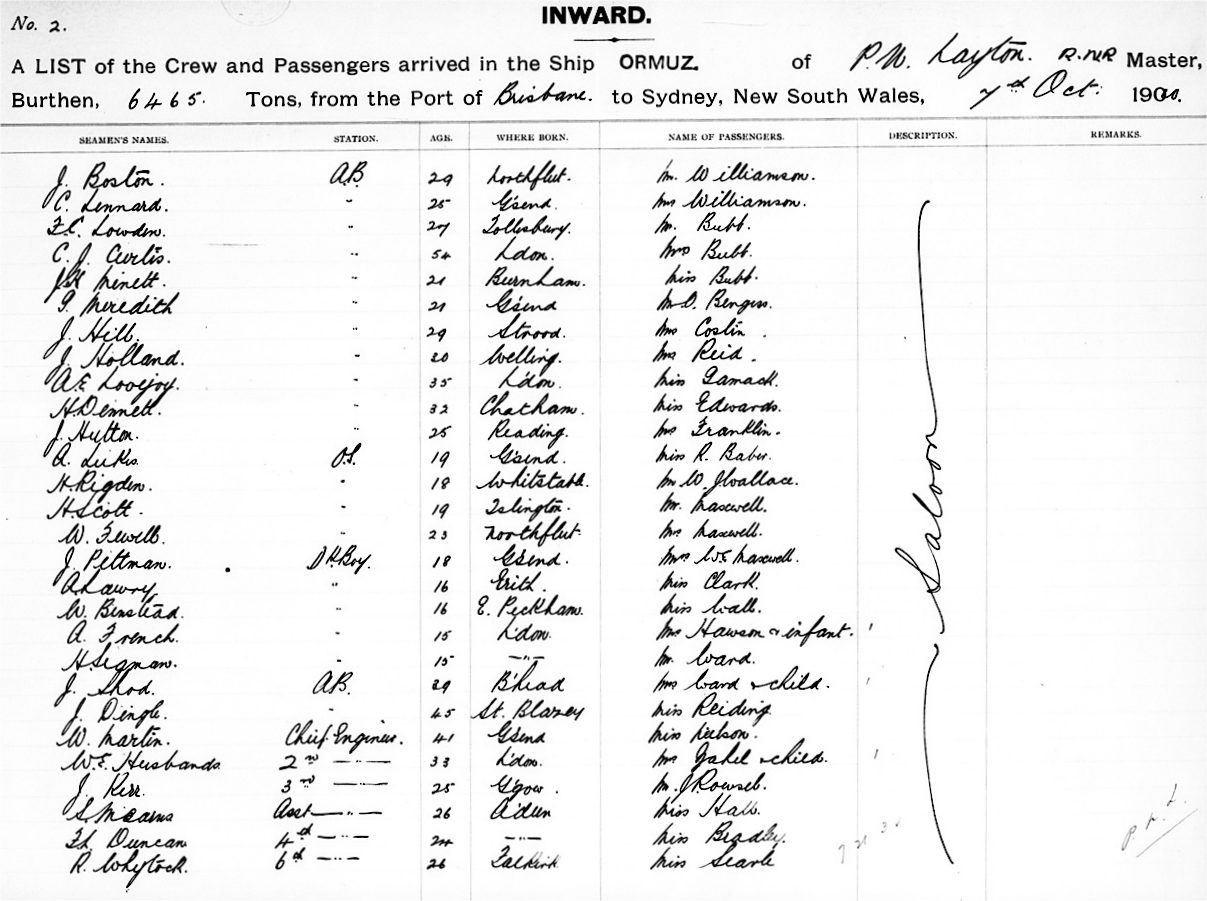 No. 2.
INWARD.
A LIST of the Crew and Passengers arrived in the Ship ORMUZ. of P. W. Layton. R.N.R Master,
Burthen, 6465. Tons, from the Port of Brisbane. to Sydney, New South Wales, 7th Oct. 1900.
SEAMEN'S NAMES. STATION. AGE. WHERE BORN. NAME OF PASSENGERS. DESCRIPTION. REMARKS.
J. Boston. A.B 29 Northfleet. Mr. Williamson.
C. Lennard. " 25 G'send. Mrs Williamson.
F.C. Lowden. " 27 Tollesbury. Mr. Bubb.
C. J. Curtis. " 54 L'don. Mrs Bubb.
Minett. " 21 Burnham. Miss Bubb.
Meredith " 21 G'send Mr D.
J. Hill. " 29 Strood. Mrs Costin.
J. Holland. " 20 Welling. Mrs Reid.
A.E. Lovejoy. " 35 L'don. Miss
H Dennett. " 32 Chatham. Miss Edwards.
J. Hutton. " 25 Reading. Mrs Franklin.
A. O.S. 19 G'send. Miss R. Baber.
H. Rigden. " 18 Whitstable. Mr W. J Wallace.
H. Scott. " 19 Islington. Mr. Maxwell.
W. Fewell. " 23 Northfleet. Mrs Maxwell.
J. Pittman. Dk Boy. 18 G'send. Mrs W.E Maxwell.
A Lawry " 16 Erith. Miss Clark.
W. Binstead. " 16 E. Peckham. Miss Wall.
A. French. " 15 L'don. Mrs Hawson & infant.
H Segman. " 15 —"— Mr. Ward.
J. Shod. A.B. 29 B'head Mrs Ward & child.
J. Dingle. " 45 St. Blazey Miss Reiding
W. Martin. Chief Engineer. 41 G'send Miss Nelson.
W.E. Husbands 2nd —"— 33 L'don. Mrs & child.
J. Kerr. 3rd —"— 25 G'gow. Mr. J
S Mearns Asst —"— 26 A'deen Miss Hall.
Duncan 4th —"— 24 —"— Miss Bradley.
R. Whytock. 6th —"— 26 Falkirk Miss Searle
Saloon